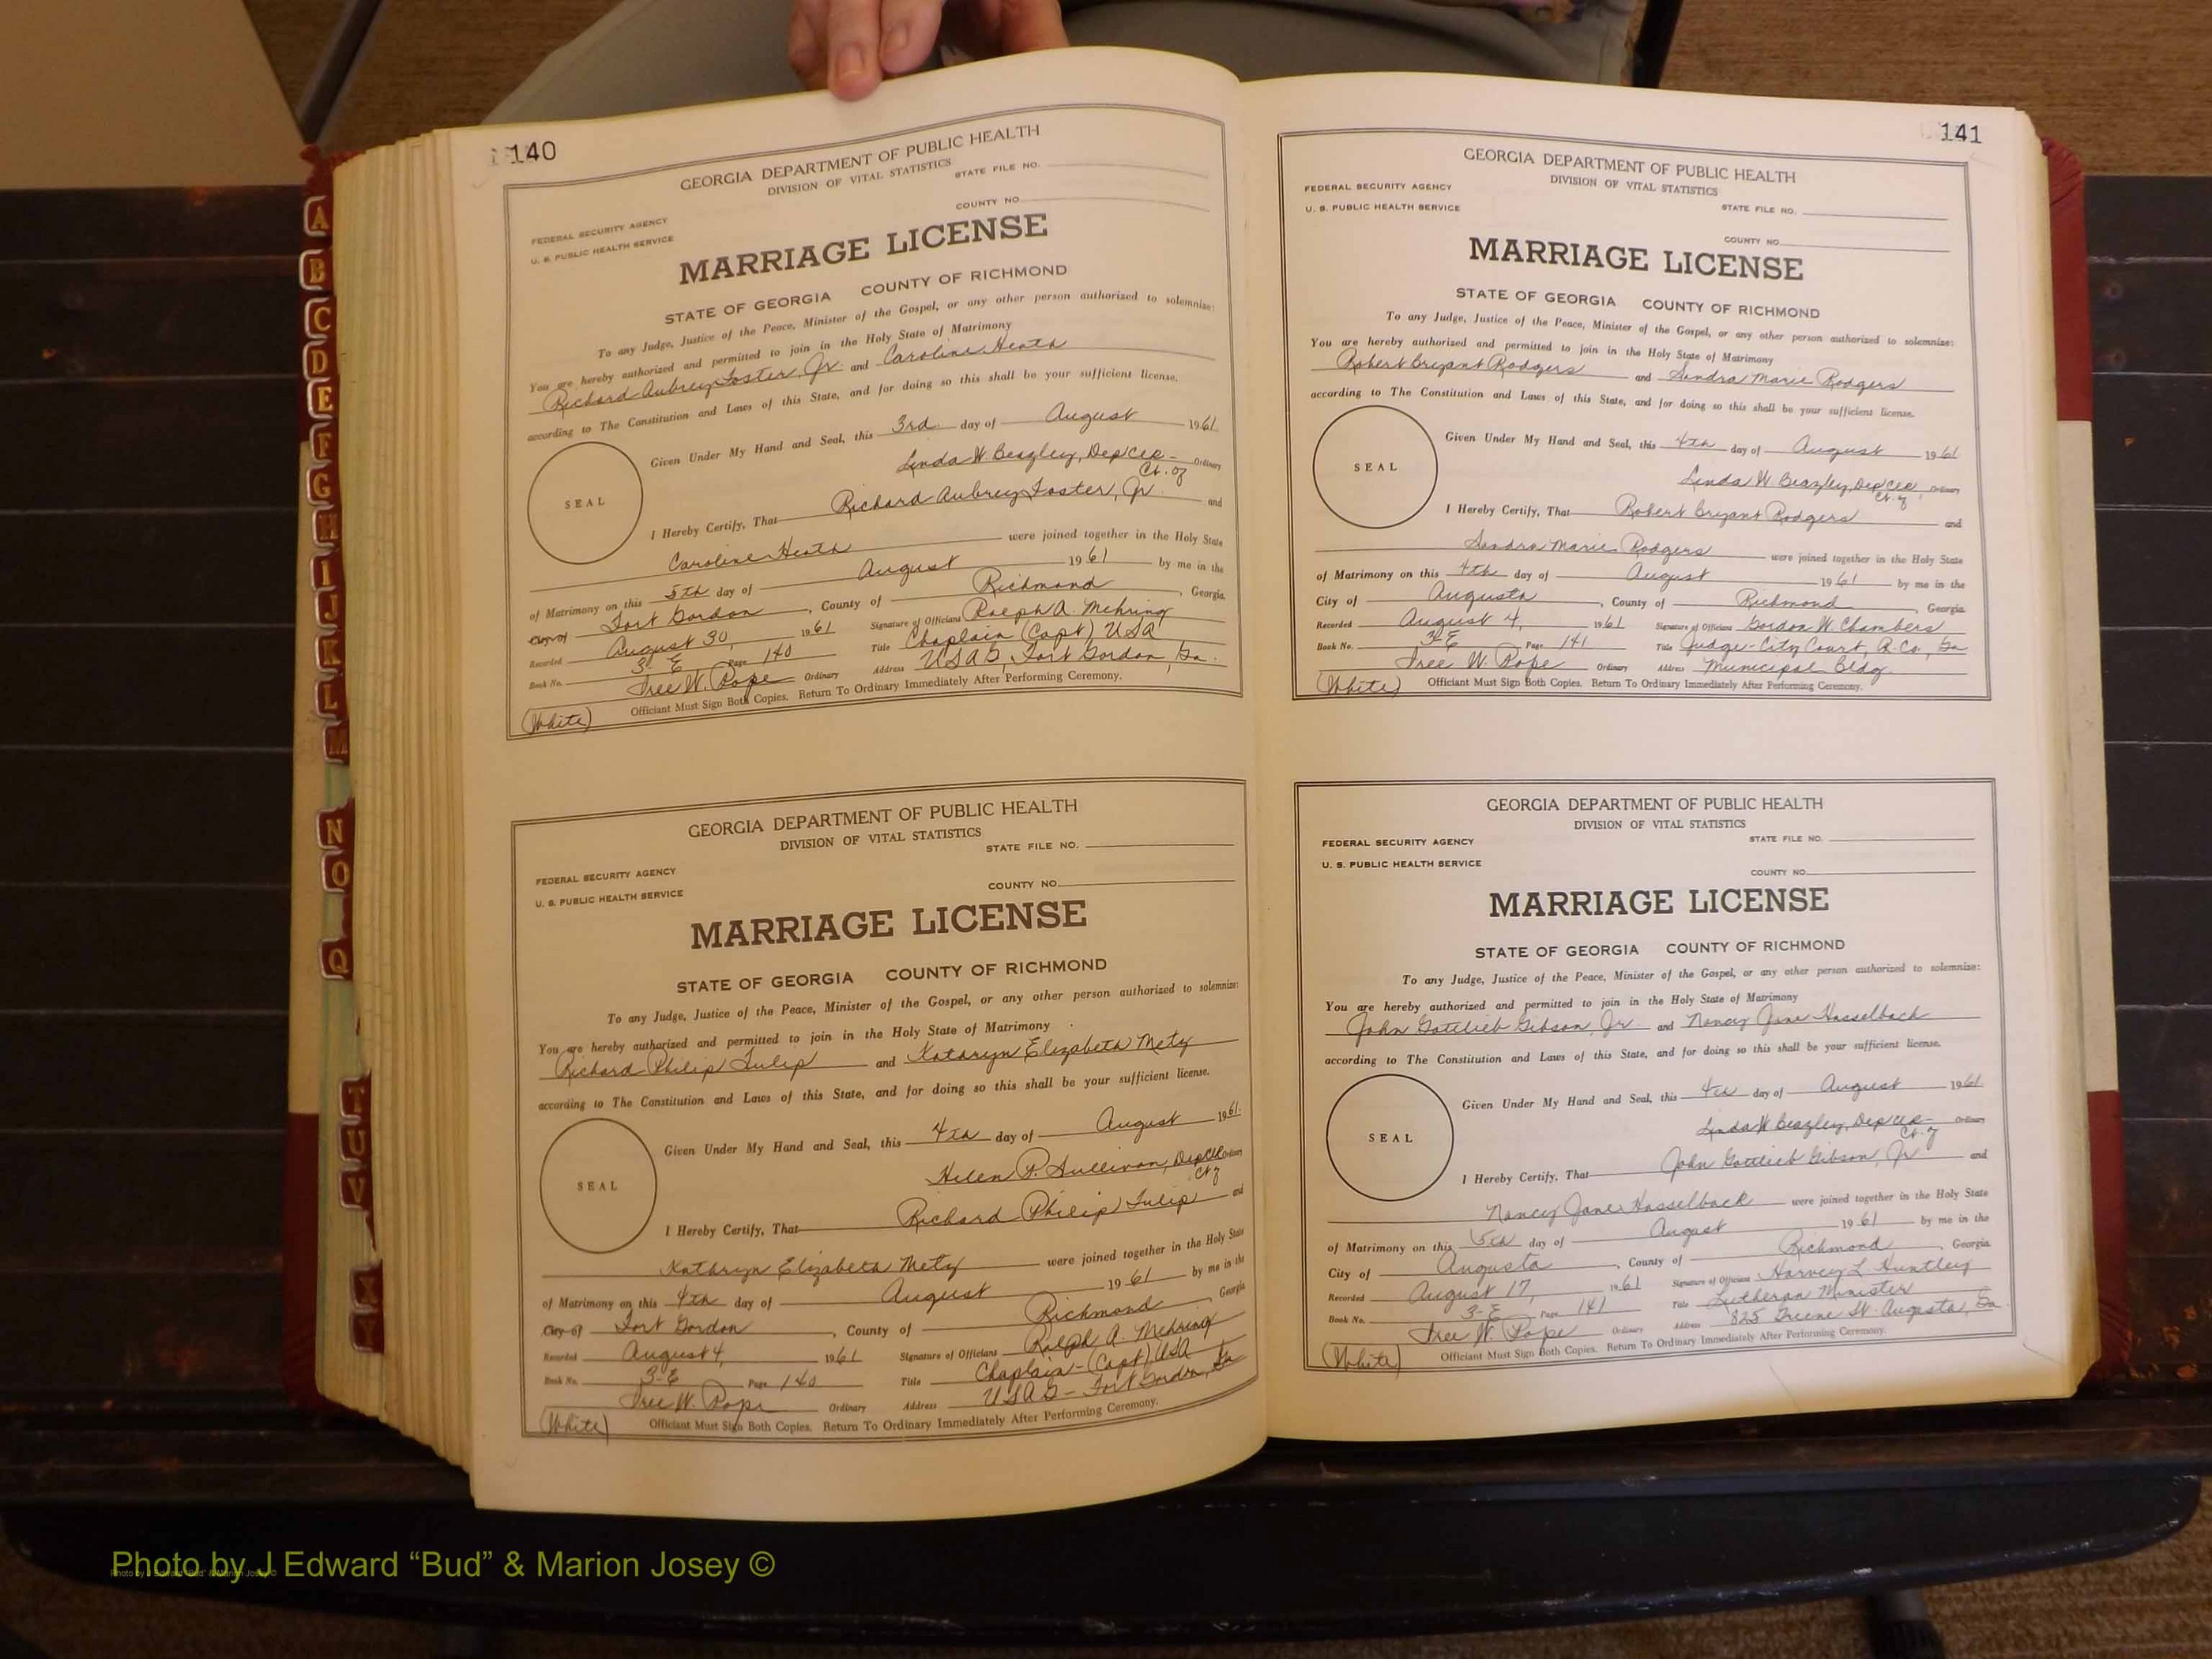 A
B
C
D
E
F
G
H
I
J
K
L
M
N
O
Q
T
U
V
X
Y
140
GEORGIA DEPARTMENT OF PUBLIC HEALTH
DIVISION OF VITAL STATISTICS
STATE FILE NO.
FEDERAL SECURITY AGENCY
U. S. PUBLIC HEALTH SERVICE
COUNTY NO.
MARRIAGE LICENSE
STATE OF GEORGIA COUNTY OF RICHMOND
To any Judge, Justice of the Peace, Minister of the Gospel, or any other person authorized to solemnize:
You are hereby authorized and permitted to join in the Holy State of Matrimony
Richard Aubrey Foster, Jr. and Caroline Heath
according to The Constitution and Laws of this State, and for doing so this shall be your sufficient license.
Given Under My Hand and Seal, this 3rd day of August 1961
SEAL
Linda W. Beazley, Dep Clk Ordinary
Ct. of
I Hereby Certify, That Richard Aubrey Foster, Jr. and
Caroline Heath were joined together in the Holy State
of Matrimony on this 5th day of August 1961 by me in the
City of Fort Gordon, County of Richmond, Georgia.
Recorded August 30, 1961 Signature of Officiant Ralph A. Mehring
Book No. 3-E Page 140 Title Chaplain (Capt) USA
Tree W. Pope Ordinary Address USAG, Fort Gordon, Ga.
(White) Officiant Must Sign Both Copies. Return To Ordinary Immediately After Performing Ceremony.
GEORGIA DEPARTMENT OF PUBLIC HEALTH
DIVISION OF VITAL STATISTICS
STATE FILE NO.
FEDERAL SECURITY AGENCY
U. S. PUBLIC HEALTH SERVICE
COUNTY NO.
MARRIAGE LICENSE
STATE OF GEORGIA COUNTY OF RICHMOND
To any Judge, Justice of the Peace, Minister of the Gospel, or any other person authorized to solemnize:
You are hereby authorized and permitted to join in the Holy State of Matrimony
Richard Philip Tulip and Kathryn Elizabeth Metz
according to The Constitution and Laws of this State, and for doing so this shall be your sufficient license.
Given Under My Hand and Seal, this 4th day of August 1961
SEAL
Helen P. Sullivan, Dep Clk Ordinary
Ct of
I Hereby Certify, That Richard Philip Tulip and
Kathryn Elizabeth Metz were joined together in the Holy State
of Matrimony on this 4th day of August 1961 by me in the
City of Fort Gordon, County of Richmond, Georgia
Recorded August 4, 1961 Signature of Officiant Ralph A. Mehring
Book No. 3-E Page 140 Title Chaplain-(Capt) USA
Tree W. Pope Ordinary Address USAG - Fort Gordon, Ga
(White) Officiant Must Sign Both Copies. Return To Ordinary Immediately After Performing Ceremony.
141
GEORGIA DEPARTMENT OF PUBLIC HEALTH
DIVISION OF VITAL STATISTICS
FEDERAL SECURITY AGENCY
U. S. PUBLIC HEALTH SERVICE
STATE FILE NO.
COUNTY NO.
MARRIAGE LICENSE
STATE OF GEORGIA COUNTY OF RICHMOND
To any Judge, Justice of the Peace, Minister of the Gospel, or any other person authorized to solemnize:
You are hereby authorized and permitted to join in the Holy State of Matrimony
Robert Bryant Rodgers and Sandra Marie Rodgers
according to The Constitution and Laws of this State, and for doing so this shall be your sufficient license.
Given Under My Hand and Seal, this 4th day of August 1961
SEAL
Linda W Beazley, Dep Clk Ordinary
Ct. of
I Hereby Certify, That Robert Bryant Rodgers and
Sandra Marie Rodgers were joined together in the Holy State
of Matrimony on this 4th day of August 1961 by me in the
City of Augusta, County of Richmond, Georgia
Recorded August 4, 1961 Signature of Officiant Gordon W. Chambers
Book No. 3-E Page 141 Title Judge-City Court, R. Co., Ga
Tree W. Pope Ordinary Address Municipal Bldg.
(White) Officiant Must Sign Both Copies. Return To Ordinary Immediately After Performing Ceremony.
GEORGIA DEPARTMENT OF PUBLIC HEALTH
DIVISION OF VITAL STATISTICS
FEDERAL SECURITY AGENCY
STATE FILE NO.
U. S. PUBLIC HEALTH SERVICE
COUNTY NO.
MARRIAGE LICENSE
STATE OF GEORGIA COUNTY OF RICHMOND
To any Judge, Justice of the Peace, Minister of the Gospel, or any other person authorized to solemnize:
You are hereby authorized and permitted to join in the Holy State of Matrimony
John Gottlieb Gibson, Jr. and Nancy Jane Hasselback
according to The Constitution and Laws of this State, and for doing so this shall be your sufficient license.
Given Under My Hand and Seal, this 4th day of August 1961
SEAL
Linda W Beazley, Dep Clk Ordinary
Ct. of
I Hereby Certify, That John Gottlieb Gibson, Jr and
Nancy Jane Hasselback were joined together in the Holy State
of Matrimony on this 5th day of August 1961 by me in the
City of Augusta, County of Richmond, Georgia
Recorded August 17, 1961 Signature of Officiant Harvey L Huntley
Book No. 3-E Page 141 Title Lutheran Minister
Tree W. Pope Ordinary Address 825 Greene St. Augusta, Ga.
(White) Officiant Must Sign Both Copies. Return To Ordinary Immediately After Performing Ceremony.
Photo by J Edward “Bud” & Marion Josey ©
Photo by J Edward "Bud" & Marion Josey ©